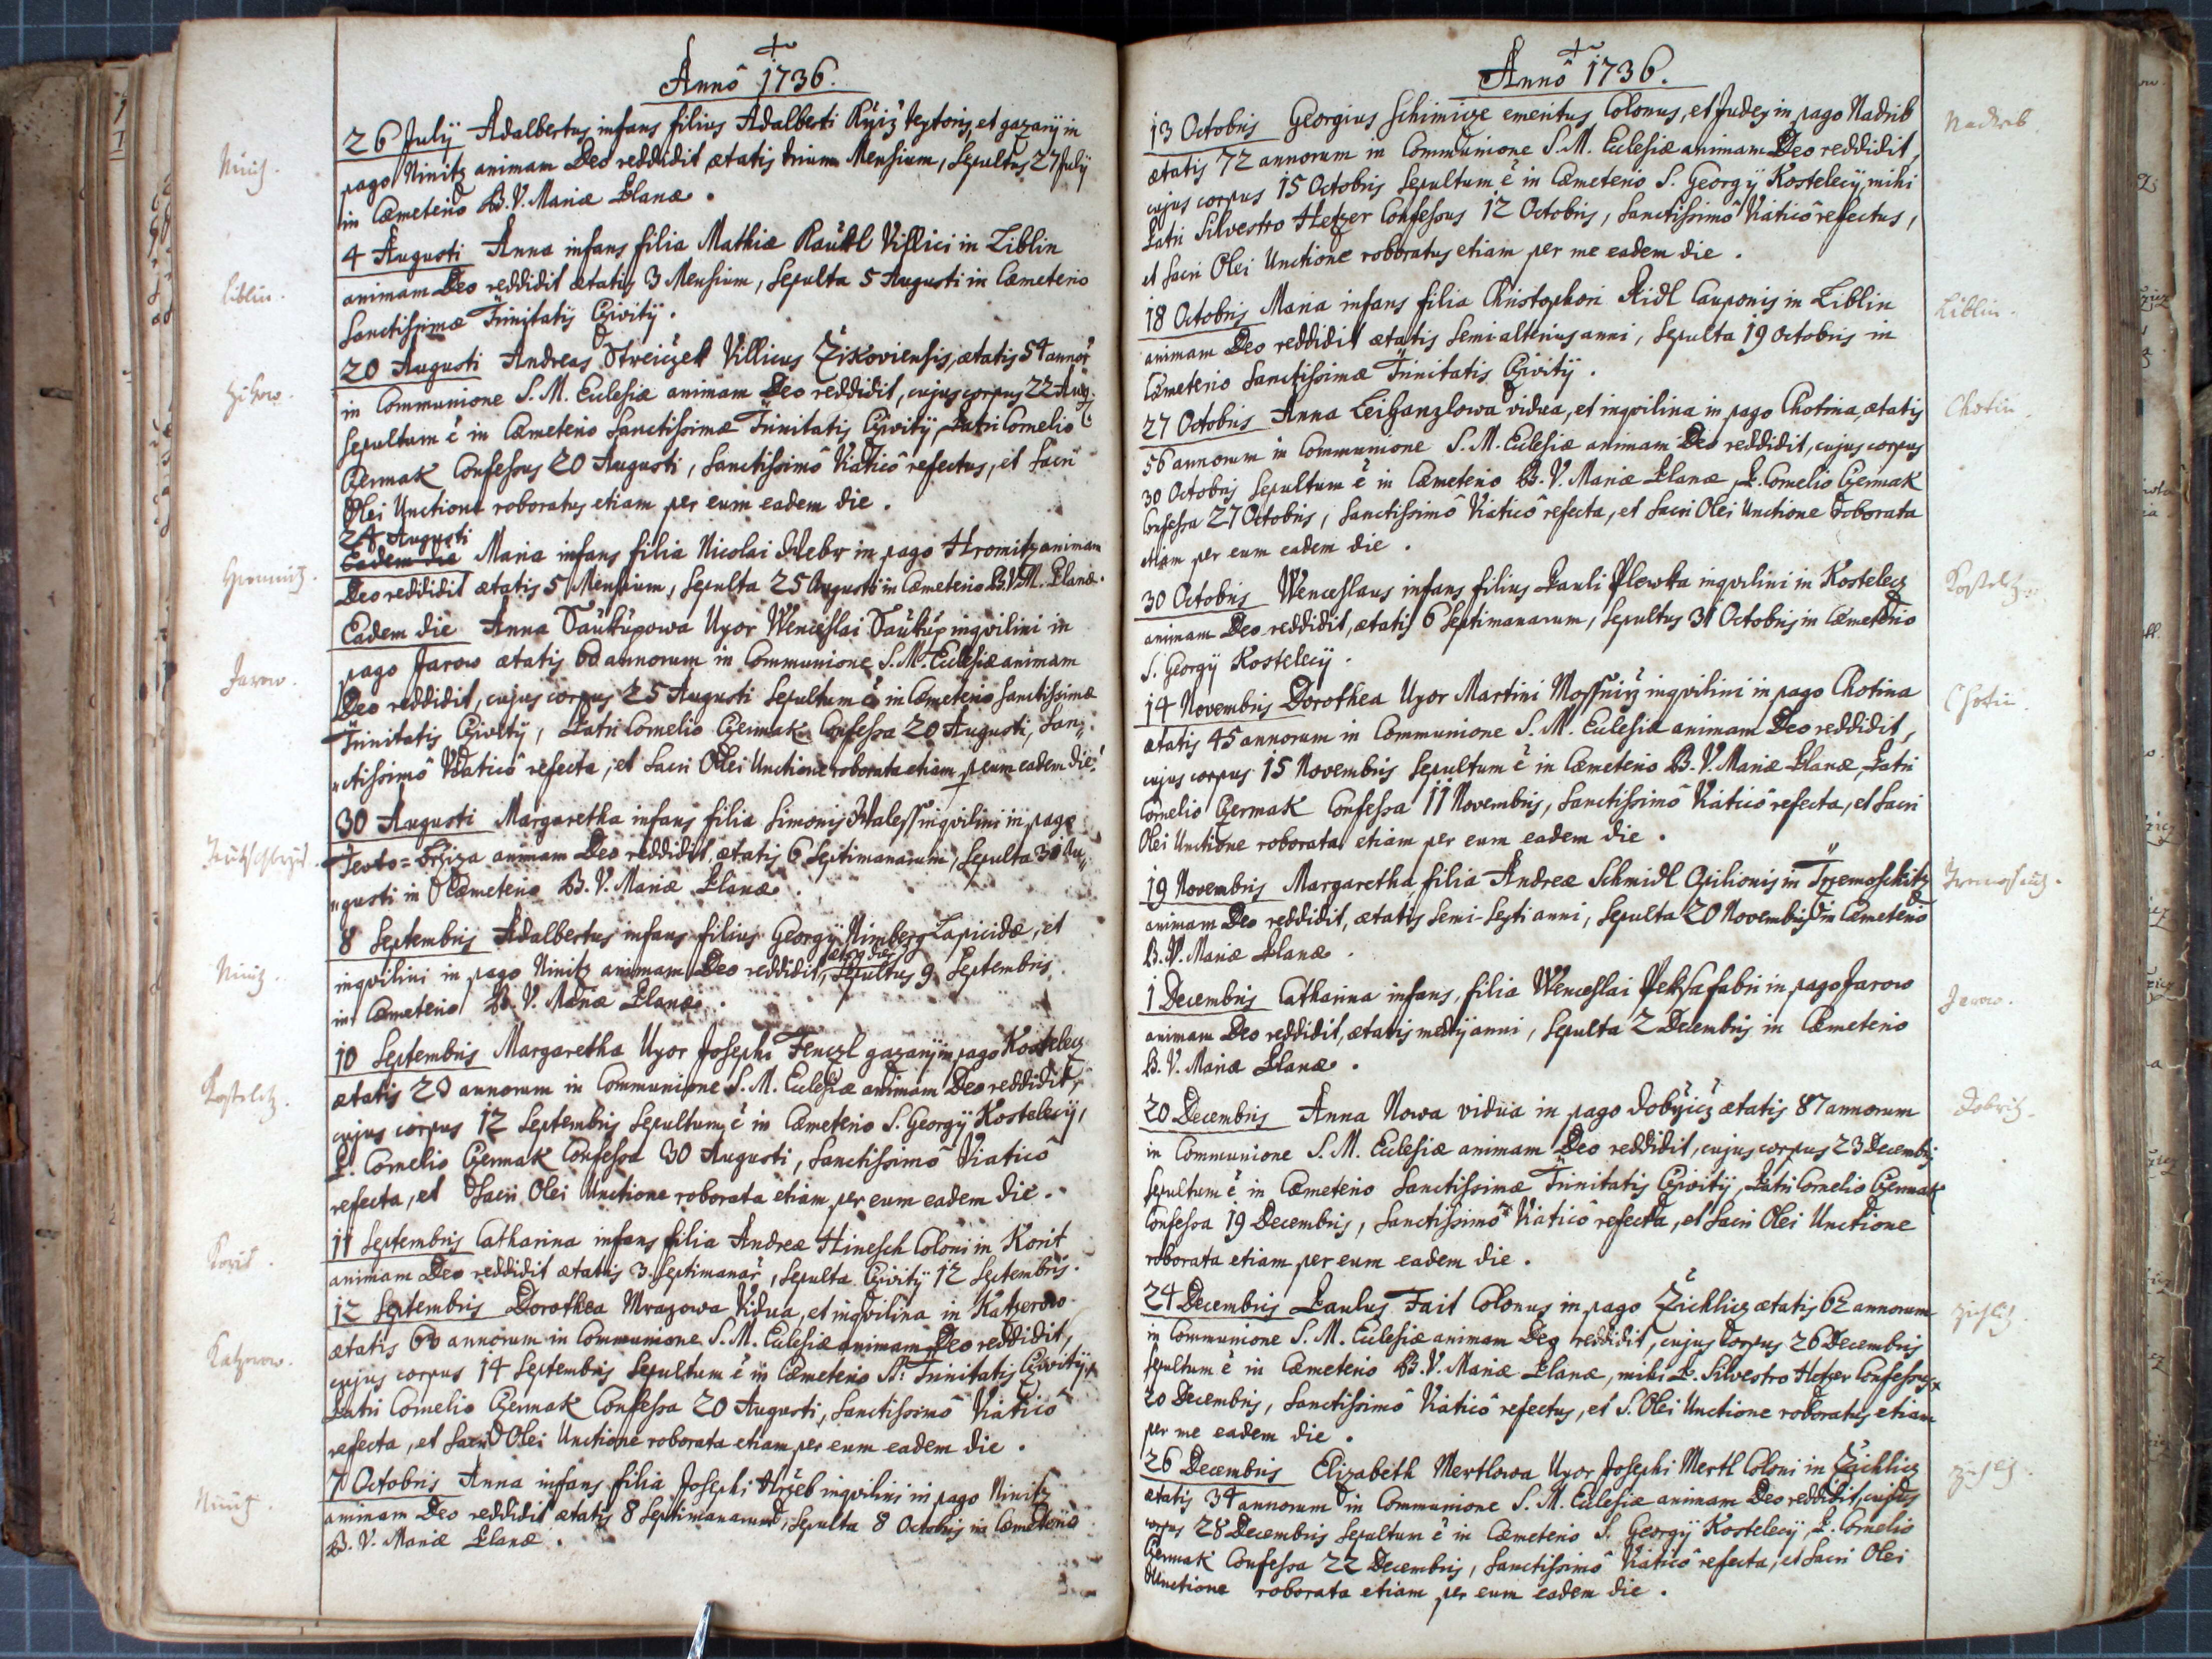 Annô 1736.
Ninitz.
26 Julÿ Adalbertus infans filius Adalberti Ryiz textoris, et gazarÿ in
pago Ninitz animam Deo reddidit ætatis trium Mensium, Sepultus 27 Julÿ
in Cæmeterio B. V. Mariæ Planæ.
Liblin.
4 Augusti Anna infans filia Mathiæ Rauttl Villici in Liblin
animam Deo reddidit ætatis 3 Mensium, Sepulta 5 Augusti in Cæmeterio
Sanctissimæ Trinitatis
Zikow.
20 Augusti Andreas Streiczek Villicus Zikoviensis, ætatis 54 annor
in Communione S. M. Eclesiæ animam Deo reddidit, cujus corpus 22 Aug.
Sepultum ê in Cæmeterio Sanctissimæ Trinitatis Patri Cornelio
Czermak Confessus 20 Augusti, Sanctissimô Viaticô refectus, et Sacri
Olei Unctione roboratus etiam per eum eadem die.
24 Augusti
Hromnitz.
Eadem die Maria infans filia Nicolai Weber in pago Hromitz animam
Deo reddidit ætatis 5 Mensium, Sepulta 25 Augusti in Cæmeterio B.V.M. Planæ.
Jarow.
Eadem die Anna Saukupowa Uxor Wenceslai Saukup inqvilini in
pago Jarow ætatis 60 annorum in Communione S. M. Eclesiæ animam
Deo reddidit, cujus corpus 25 Augusti Sepultum ê in Cæmeterio Sanctissimæ
Trinitatis Patri Cornelio Czermak Confessa 20 Augusti, San„
„ctissimô Viaticô refecta, et Sacri Olei Unctione roborata etiam p eum eadem die.
30 Augusti Margaretha infans filia Simonis Waless inqvilini in pago
Teuto=Brziza animam Deo reddidit, ætatis 6 Septimanarum, Sepulta 31 Au„
„gusti in Cæmeterio B. V. Mariæ Planæ.
Ninitz.
8 Septembris Adalbertus infans filius Georgÿ Nimberg Lapicidæ, et
inqvilini in pago Ninitz animam Deo reddidit, Sepultus 9 Septembris
in Cæmeterio B. V. Mariæ Planæ.
Kosteletz.
10 Septembris Margaretha Uxor Josephi Fenczl gazarÿ in pago Kostelecz
ætatis 20 annorum in Communione S. M. Eclesiæ animam Deo reddidit,
cujus corpus 12 Septembris Sepultum ê in Cæmeterio S. Georgÿ Kostelecÿ,
P. Cornelio Czermak Confessa 30 Augusti, Sanctissimô Viaticô
refecta, et Sacri Olei Unctione roborata etiam per eum eadem die.
Korit.
11 Septembris Catharina infans filia Andreæ Hinesch Coloni in Korit
animam Deo reddidit ætatis 3 Septimanar, Sepulta 12 Septembris.
Katzerow.
12 Septembris Dorothea Mrazowa Vidua, et inqvilina in Katzerow
ætatis 60 annorum in Communione S. M. Eclesiæ animam Deo reddidit,
cujus corpus 14 Septembris Sepultum ê in Cæmeterio SS: Trinitatis
Patri Cornelio Czermak Confessa 20 Augusti, Sanctissimô Viaticô
refecta, et Sacri Olei Unctione roborata etiam per eum eadem die.
Ninitz.
7 Octobris Anna infans filia Josephi Hrzeb inqvilini in pago Ninitz
animam Deo reddidit ætatis 8 Septimanarum, Sepulta 8 Octobris in Cæmeterio
B. V. Mariæ Planæ.
Annô 1736.
Nadrib.
13 Octobris Georgius Schimicze emeritus Colonus, et Judex in pago Nadrib
ætatis 72 annorum in Communione S. M. Eclesiæ animam Deo reddidit,
cujus corpus 15 Octobris Sepultum ê in Cæmeterio S. Georgÿ Kostelecÿ, mihi
Patri Silvestro Hetzer Confessus 12 Octobris, Sanctissimô Viaticô refectus,
et Sacri Olei Unctione roboratus etiam per me eadem die.
Liblin.
18 Octobris Maria infans filia Christophori Ridl Cauponis in Liblin
animam Deo reddidit ætatis Semialterius anni, Sepulta 19 Octobris in
Cæmeterio Sanctissimæ Trinitatis
Chotin
27 Octobris Anna Leihanzlowa vidua, et inqvilina in pago Chotina, ætatis
56 annorum in Communione S. M. Eclesiæ animam Deo reddidit, cujus corpus
30 Octobris Sepultum ê in Cæmeterio B. V. Mariæ Planæ, P. Cornelio Czermak
Confessa 27 Octobris, Sanctissimô Viaticô refecta, et Sacri Olei Unctione roborata
etiam per eum eadem die.
Kosteletz
30 Octobris Wenceslaus infans filius Pauli Plewka inqvilini in Kostelecz
animam Deo reddidit, ætatis 6 Septimanarum, Sepultus 31 Octobris in Cæmeterio
S. Georgÿ Kostelecÿ.
Chotin.
14 Novembris Dorothea Uxor Martini Mossnirz inqvilini in pago Chotina
ætatis 45 annorum in Communione S. M. Eclesiæ animam Deo reddidit,
cujus corpus 15 Novembris Sepultum ê in Cæmeterio B. V. Mariæ Planæ, Patri
Cornelio Czermak Confessa 11 Novembris, Sanctissimô Viaticô refecta, et Sacri
Olei Unctione roborata etiam per eum eadem die.
Tremoschitz.
19 Novembris Margaretha filia Andreæ Schmidl Opilionis in Trzemoschitz
animam Deo reddidit, ætatis Semi-Sexti anni, Sepulta 20 Novembris in Cæmeterio
B. V. Mariæ Planæ.
Jarow.
1 Decembris Catharina infans filia Wenceslai Peksa fabri in pago Jarow
animam Deo reddidit, ætatis medÿ anni, Sepulta 2 Decembris in Cæmeterio
B. V. Mariæ Planæ.
Dobritz.
20 Decembris Anna Nowa vidua in pago Dobrzicz ætatis 87 annorum
in Communione S. M. Eclesiæ animam Deo reddidit, cujus corpus 23 Decembris
Sepultum ê in Cæmeterio Sanctissimæ Trinitatis Patri Cornelio Czermak
Confessa 19 Decembris, Sanctissimô Viaticô refecta, et Sacri Olei Unctione
roborata etiam per eum eadem die.
Zichlitz.
24 Decembris Paulus Fait Colonus in pago Zichlicz ætatis 62 annorum
in Communione S. M. Eclesiæ animam Deo reddidit, cujus Corpus 26 Decembris
Sepultum ê in Cæmeterio B. V. Mariæ Planæ, mihi P. Silvestro Hetzer Confessus
20 Decembris, Sanctissimô Viaticô refectus, et S. Olei Unctione roboratus etiam
per me eadem die.
26 Decembris Elizabeth Mertlowa Uxor Josephi Mertl Coloni in Zichlicz
ætatis 34 annorum in Communione S. M. Eclesiæ animam Deo reddidit, cujus
corpus 28 Decembris Sepultum ê in Cæmeterio S. Georgÿ Kostelecÿ, P. Cornelio
Czermak Confessa 22 Decembris, Sanctissimô Viaticô refecta, et Sacri Olei
Unctione roborata etiam per eum eadem die.